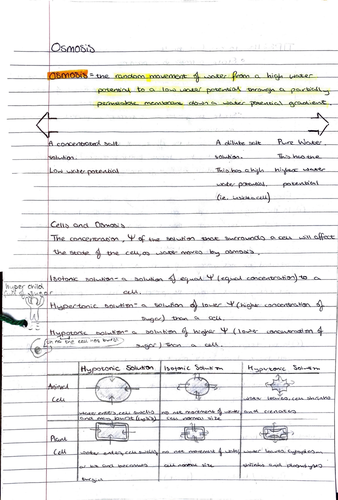 Osmosis
Osmosis = the random movement of water from a high water
potential to a low water potential through a partially
permeable membrane down a water potential gradient
A concentrated salt
solution.
Low water potential
A dilute salt
solution.
This has a high
water potential,
(i.e. inside a cell)
Pure Water.
This has the
highest water
potential
Cells and Osmosis
The concentration, Ψ of the solution that surrounds a cell will affect
the state of the cell, as water moves by osmosis.
Isotonic solution = a solution of equal Ψ (equal concentration) to a
cell.
hyper child
sugar
Hypertonic solution = a solution of lower Ψ (higher concentration of
sugar) than a cell.
Hypotonic solution = a solution of higher Ψ (lower concentration of
sugar) than a cell.
Hypotonic Solution
Isotonic Solution
Hypertonic Solution
Animal
Cell
water enters, cell swells
and may burst (lysis)
no net movement of water,
cell normal size
water leaves, cell shrinks
and crenates
Plant
Cell
water enters, cell swells
or and becomes
turgid
no net movement of water,
cell normal size
water leaves, cytoplasm
shrinks and plasmolysis